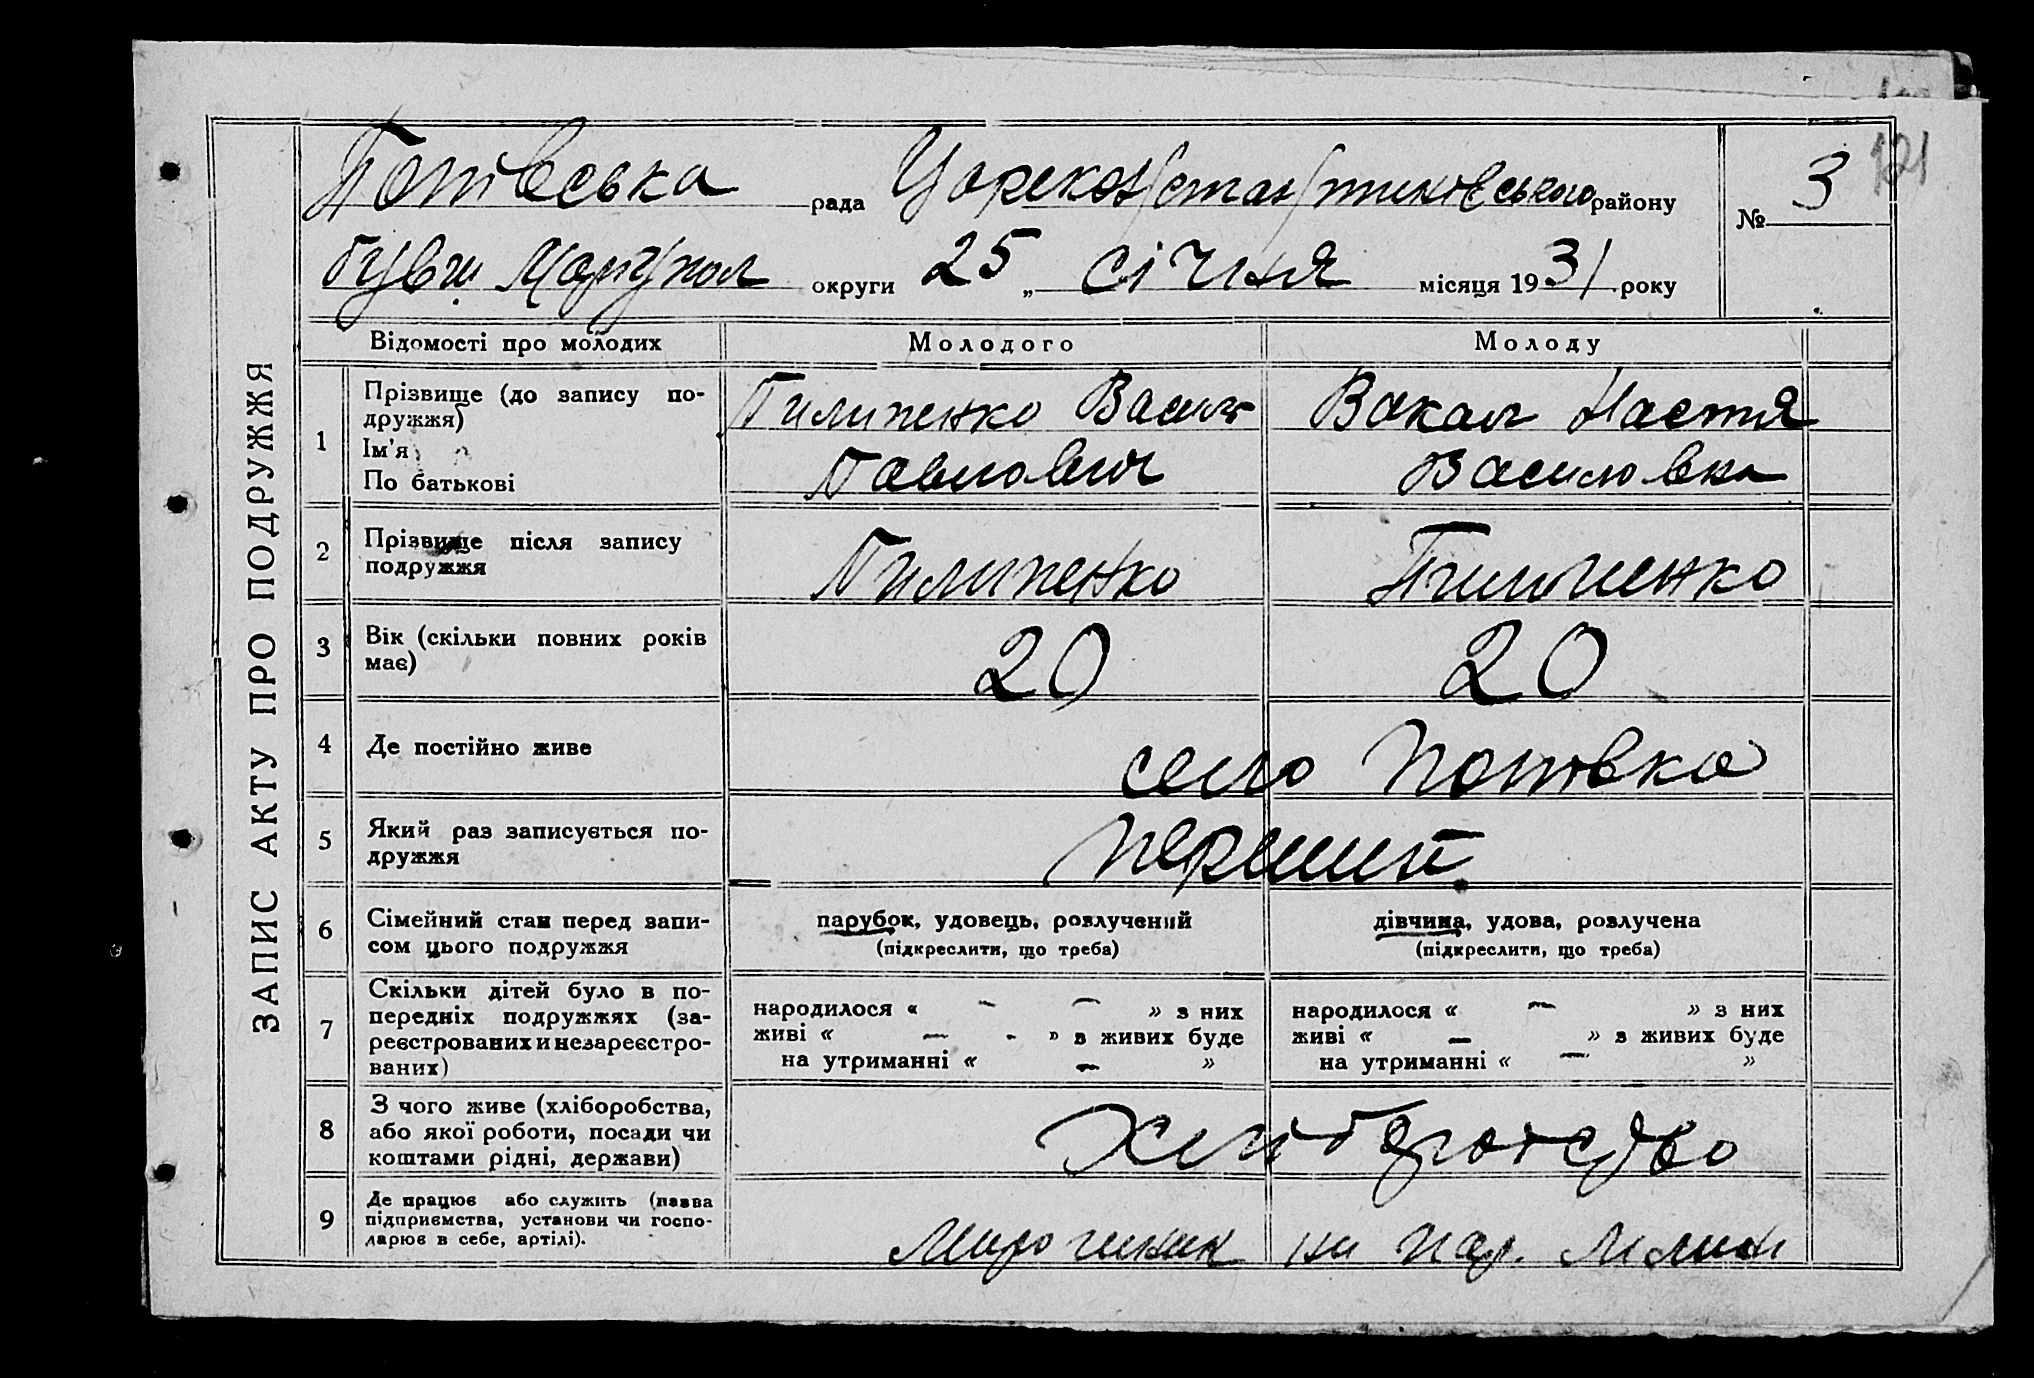 121
ЗАПИС АКТУ ПРО ПОДРУЖЖЯ
Потівська рада Царекон района
№ 3
округи 25 „ січня місяця 1931 року
Відомості про молодих Молодого Молоду
1 Прізвище (до запису по-
дружжя)
Ім'я
По батькові
Пилипенко Василь
Павлович
Вакал Настя
Василовна
2 Прізвище після запису
подружжя
Пилипенко Пилипенко
3 Вік (скільки повних років
має)
20 20
4 Де постійно живе
село Потівка
5 Який раз записується по-
дружжя
перший
6 Сімейний стан перед запи-
сом цього подружжя
парубок, удовець, розлучений
(підкреслити, що треба)
дівчина, удова, розлучена
(підкреслити, що треба)
7 Скільки дітей було в по-
передніх подружжях (за-
реєстрованих и незареєстро-
ваних)
народилося « — » з них
живі « — » з живих буде
на утриманні « — »
народилося « — » з них
живі « — » з живих буде
на утриманні « — »
8 З чого живе (хліборобства,
або якої роботи, посади чи
коштами рідні, держави)
9 Де працює або служить (назва
підприємства, установи чи госпо-
дарює в себе, артілі).
на пар.